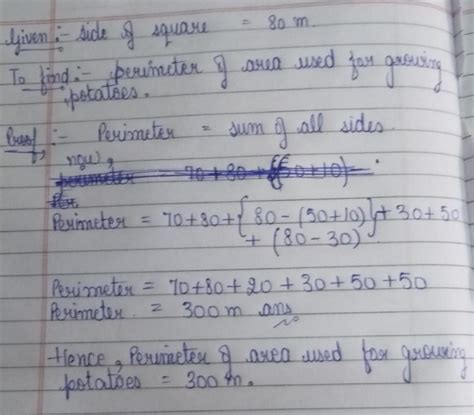 Given :- side of square = 80 m.
To find :- perimeter of area used for growing
potatoes.
Proof :- Perimeter = sum of all sides.
now,
perimeter = 70+80+{(50+10)}
Per
Perimeter = 70+80+{80-(50+10)}+30+50
+ (80-30)
Perimeter = 70+80+20+30+50+50
Perimeter = 300 m ans
Hence, Perimeter of area used for growing
potatoes = 300 m.